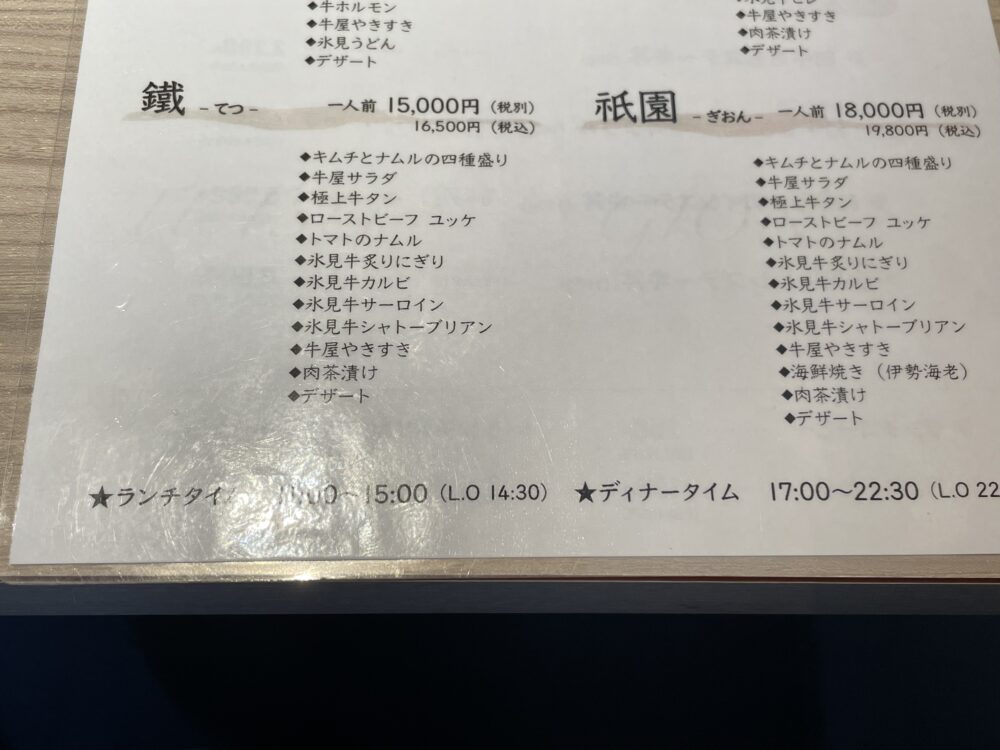 ◆牛ホルモン
◆牛屋やきすき
◆氷見うどん
◆デザート
◆牛屋やきすき
◆肉茶漬け
◆デザート
鐵 －てつ－ 一人前 15,000円（税別）
16,500円（税込）
◆キムチとナムルの四種盛り
◆牛屋サラダ
◆極上牛タン
◆ローストビーフ ユッケ
◆トマトのナムル
◆氷見牛炙りにぎり
◆氷見牛カルビ
◆氷見牛サーロイン
◆氷見牛シャトーブリアン
◆牛屋やきすき
◆肉茶漬け
◆デザート
祇園 －ぎおん－ 一人前 18,000円（税別）
19,800円（税込）
◆キムチとナムルの四種盛り
◆牛屋サラダ
◆極上牛タン
◆ローストビーフ ユッケ
◆トマトのナムル
◆氷見牛炙りにぎり
◆氷見牛カルビ
◆氷見牛サーロイン
◆氷見牛シャトーブリアン
◆牛屋やきすき
◆海鮮焼き（伊勢海老）
◆肉茶漬け
◆デザート
★ランチタイ ～15:00（L.O 14:30）
★ディナータイム 17:00～22:30（L.O 22